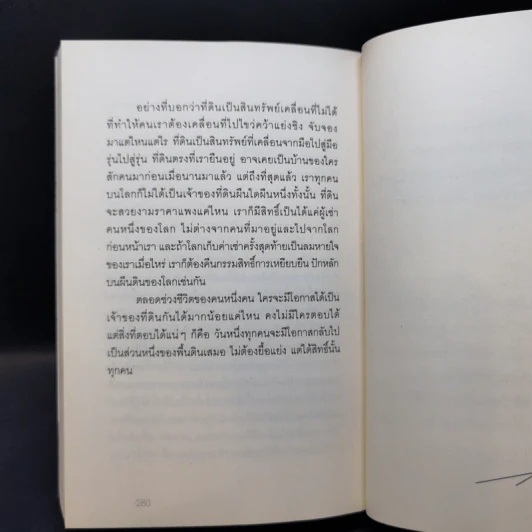 อย่างที่บอกว่าที่ดินเป็นสินทรัพย์เคลื่อนที่ไม่ได้
ที่ทำให้คนเราต้องเคลื่อนที่ไปไขว่คว้าแย่งชิง จับจอง
มาแต่ไหนแต่ไร ที่ดินเป็นสินทรัพย์ที่เคลื่อนจากมือไปสู่มือ
รุ่นไปสู่รุ่น ที่ดินตรงที่เรายืนอยู่ อาจเคยเป็นบ้านของใคร
สักคนมาก่อนเมื่อนานมาแล้ว แต่ถึงที่สุดแล้ว เราทุกคน
บนโลกก็ไม่ได้เป็นเจ้าของที่ดินผืนใดผืนหนึ่งทั้งนั้น ที่ดิน
จะสวยงามราคาแพงแค่ไหน เราก็มีสิทธิ์เป็นได้แค่ผู้เช่า
คนหนึ่งของโลก ไม่ต่างจากคนที่มาอยู่และไปจากโลก
ก่อนหน้าเรา และถ้าโลกเก็บค่าเช่าครั้งสุดท้ายเป็นลมหายใจ
ของเราเมื่อไหร่ เราก็ต้องคืนกรรมสิทธิ์การเหยียบยืน ปักหลัก
บนผืนดินของโลกเช่นกัน
ตลอดช่วงชีวิตของคนหนึ่งคน ใครจะมีโอกาสได้เป็น
เจ้าของที่ดินกันได้มากน้อยแค่ไหน คงไม่มีใครตอบได้
แต่สิ่งที่ตอบได้แน่ๆ ก็คือ วันหนึ่งทุกคนจะมีโอกาสกลับไป
เป็นส่วนหนึ่งของพื้นดินเสมอ ไม่ต้องยื้อแย่ง แต่ได้สิทธิ์นั้น
ทุกคน
280